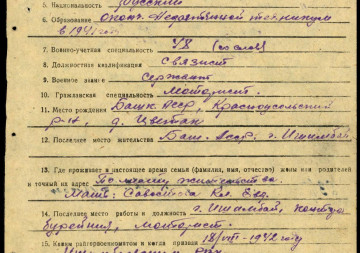 5. Национальность русский
6. Образование оконч. Нефтяной техникум
в 1941 году
7. Военно-учетная специальность У8 (со слов)
8. Должностная квалификация Связист
9. Военное звание Сержант
10. Гражданская специальность Моторист.
11. Место рождения Башк АССР, Красноусольский
р-н, д.
12. Последнее место жительства Баш. АССР. г. Ишимбай
13. Где проживает в настоящее время семья (фамилия, имя, отчество) жены или родителей
и точный их адрес По моему жительства.
Мать:
14. Последнее место работы и должность г. Ишимбай, контора
бурения, моторист.
15. Каким райгорвоенкоматом и когда призван 18/VIII-1942 году
РВК